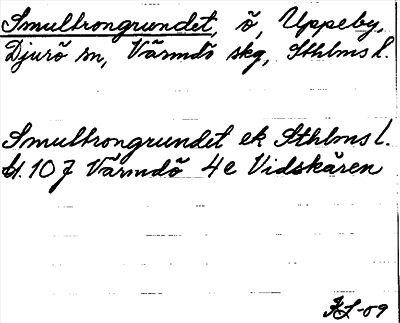 Smultrongrundet, ö, Uppeby,
Djurö sn, Värmdö skg, Sthlms l.
Smultrongrundet ek Sthlms l.
bl. 107 Värmdö 4e Vidskären
-09